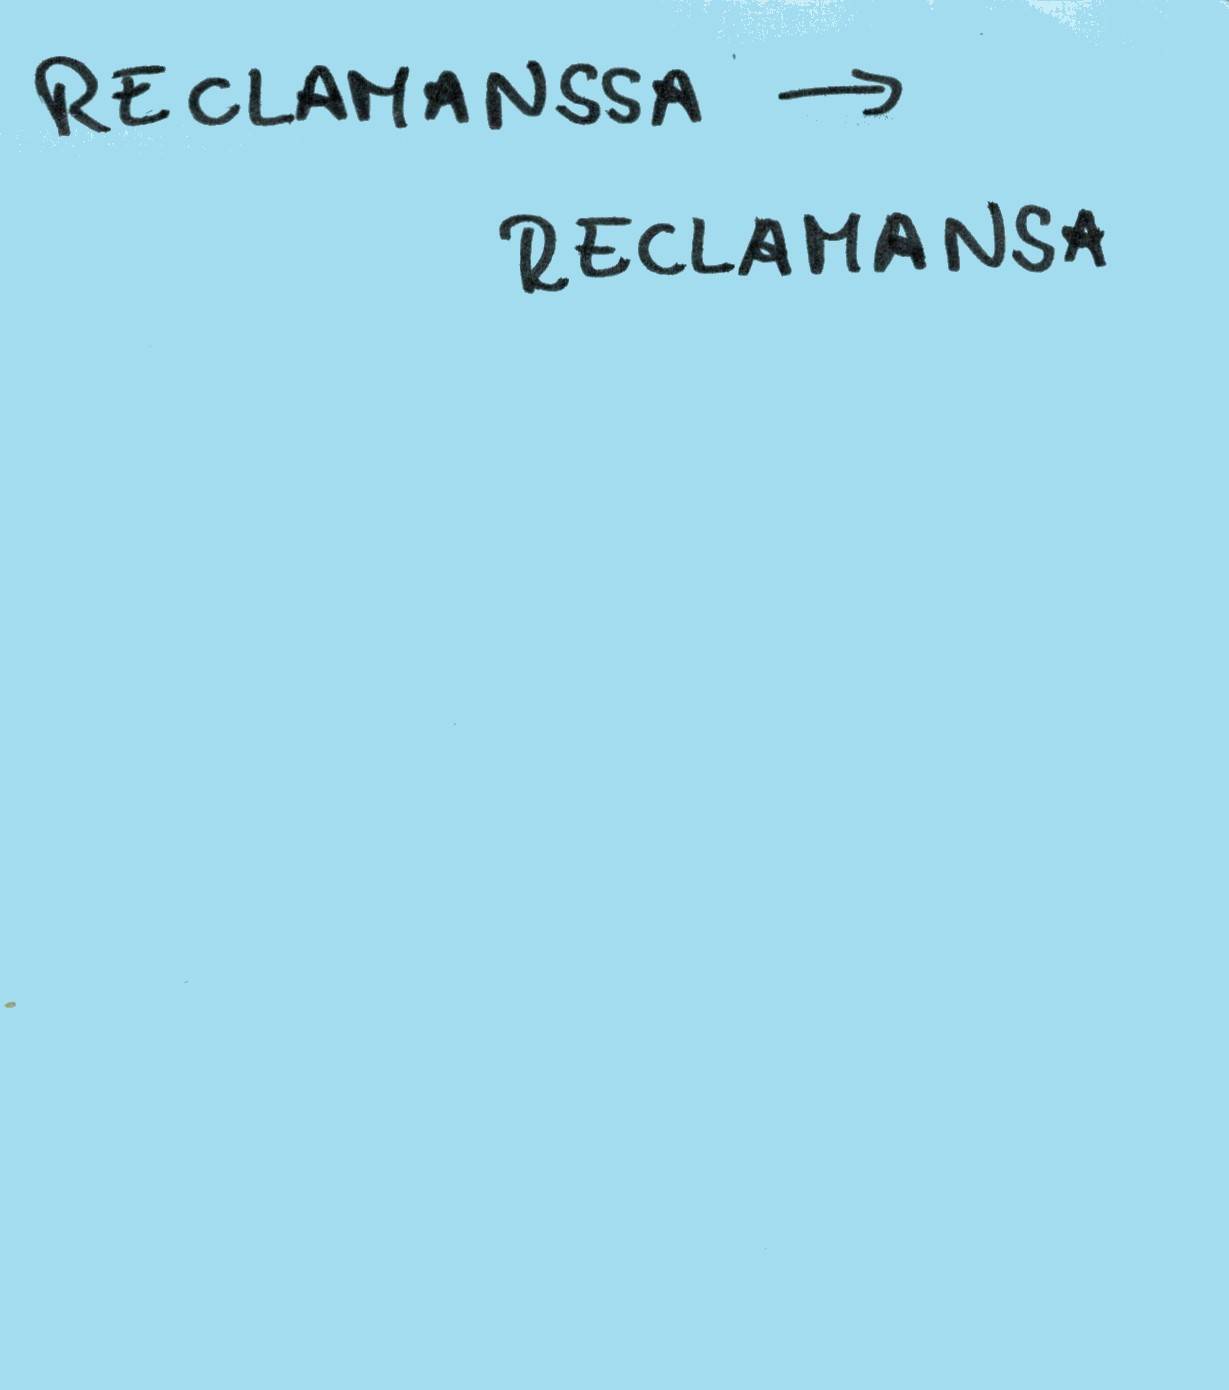 RECLAMANSSA →
RECLAMANSA